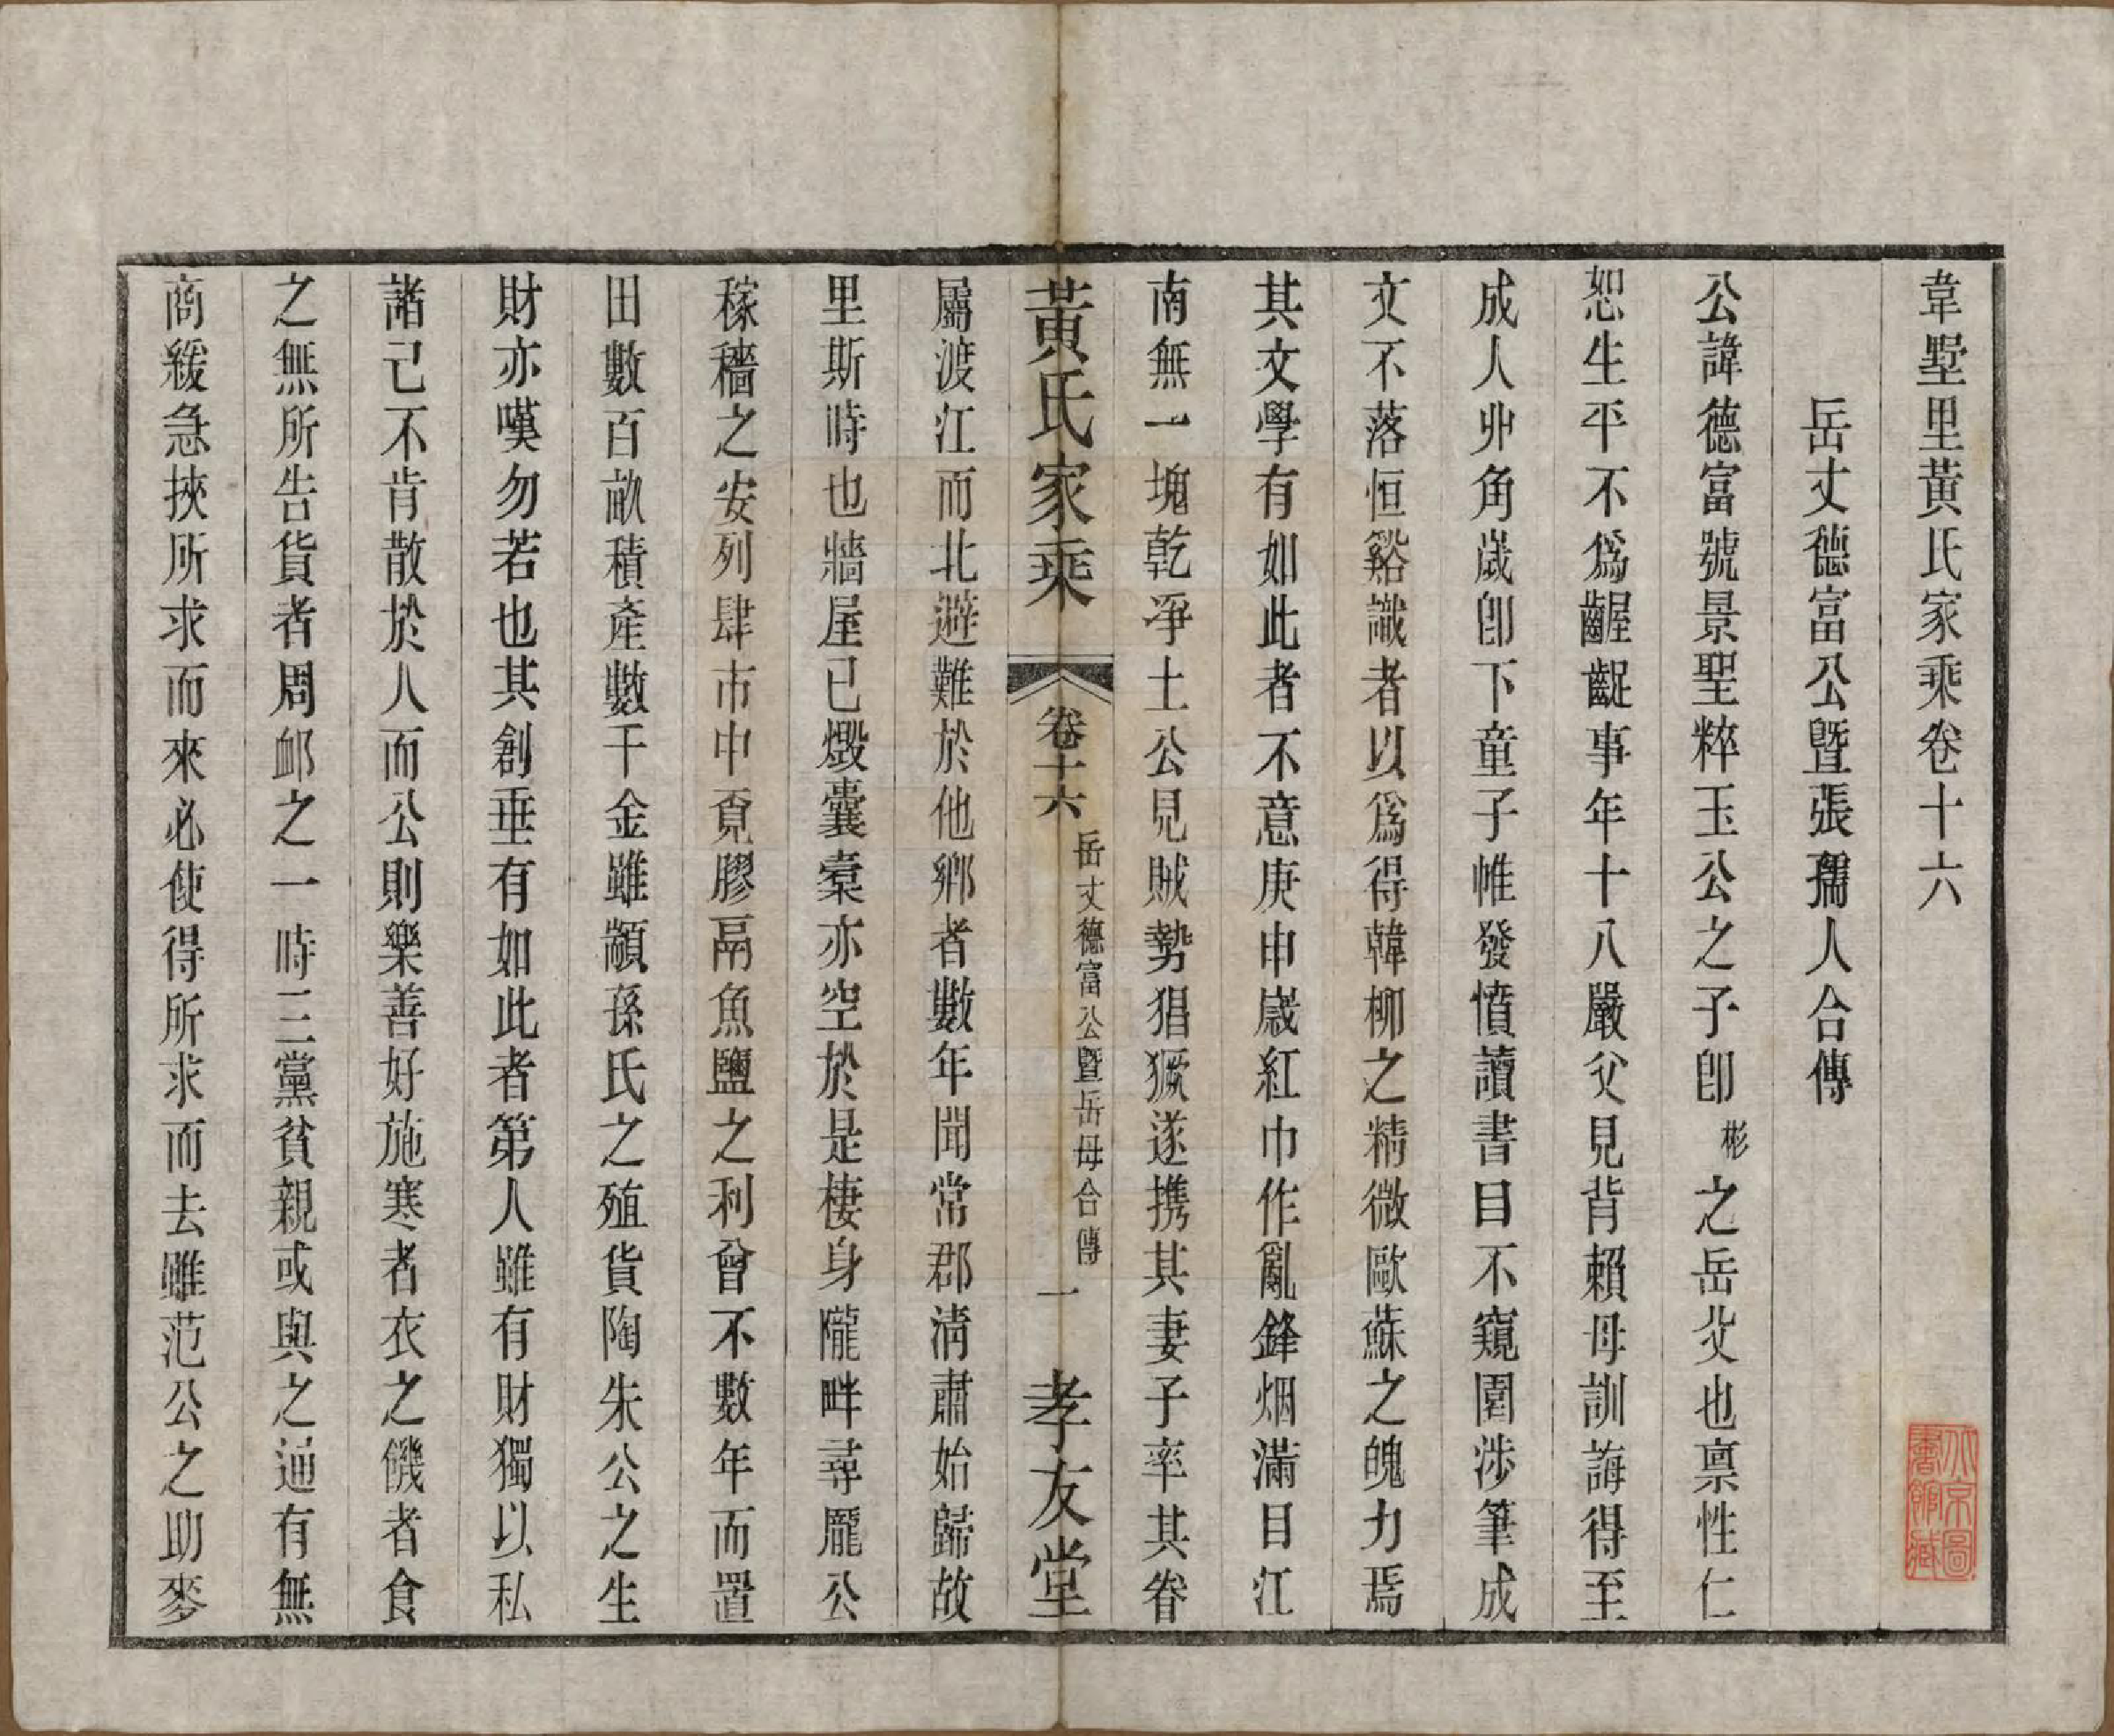 韋墅里黃氏家乘卷十六
岳丈德富公暨張孺人合傳
公諱德富號景聖粹玉公之子卽彬之岳父也禀性仁
恕生平不爲齷齪事年十八嚴父見背賴母訓誨得至
成人丱角歲卽下童子帷發憤讀書目不窺園涉筆成
文不落恒谿識者以爲得韓柳之精微歐蘇之魄力焉
其文學有如此者不意庚申歲紅巾作亂鋒烟滿目江
南無一塊乾淨土公見賊勢猖獗遂携其妻子率其眷
黃氏家乘 卷十六 岳丈德富公暨岳母合傳 一 孝友堂
屬渡江而北避難於他鄉者數年聞常郡淸肅始歸故
里斯時也牆屋已燬囊橐亦空於是棲身隴畔尋龐公
稼穡之安列肆市中覓膠鬲魚鹽之利曾不數年而置
田數百畝積產數千金雖顓孫氏之殖貨陶朱公之生
財亦嘆勿若也其創垂有如此者第人雖有財獨以私
諸己不肯散於人而公則樂善好施寒者衣之饑者食
之無所告貨者周卹之一時三黨貧親或與之通有無
商緩急挾所求而來必使得所求而去雖范公之助麥
北京圖書館藏